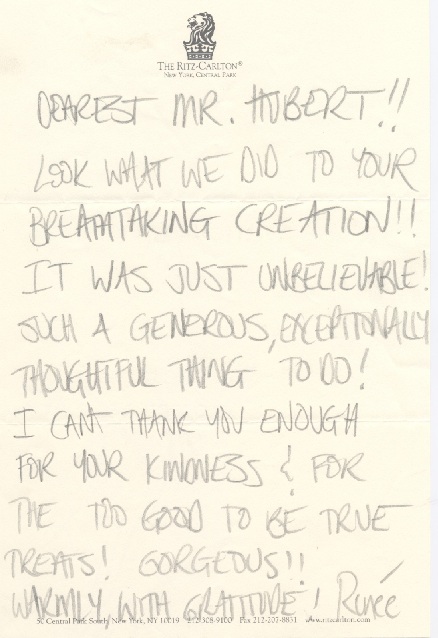 THE RITZ-CARLTON®
NEW YORK, CENTRAL PARK
DEAREST MR. HUBERT!!
LOOK WHAT WE DID TO YOUR
BREATHTAKING CREATION!!
IT WAS JUST UNBELIEVABLE!
SUCH A GENEROUS, EXCEPTIONALLY
THOUGHTFUL THING TO DO!
I CAN'T THANK YOU ENOUGH
FOR YOUR KINDNESS & FOR
THE TOO GOOD TO BE TRUE
TREATS! GORGEOUS!!
WARMLY, WITH GRATITUDE! Renée
50 Central Park South, New York, NY 10019 212-308-9100 Fax 212-207-8831 www.ritzcarlton.com